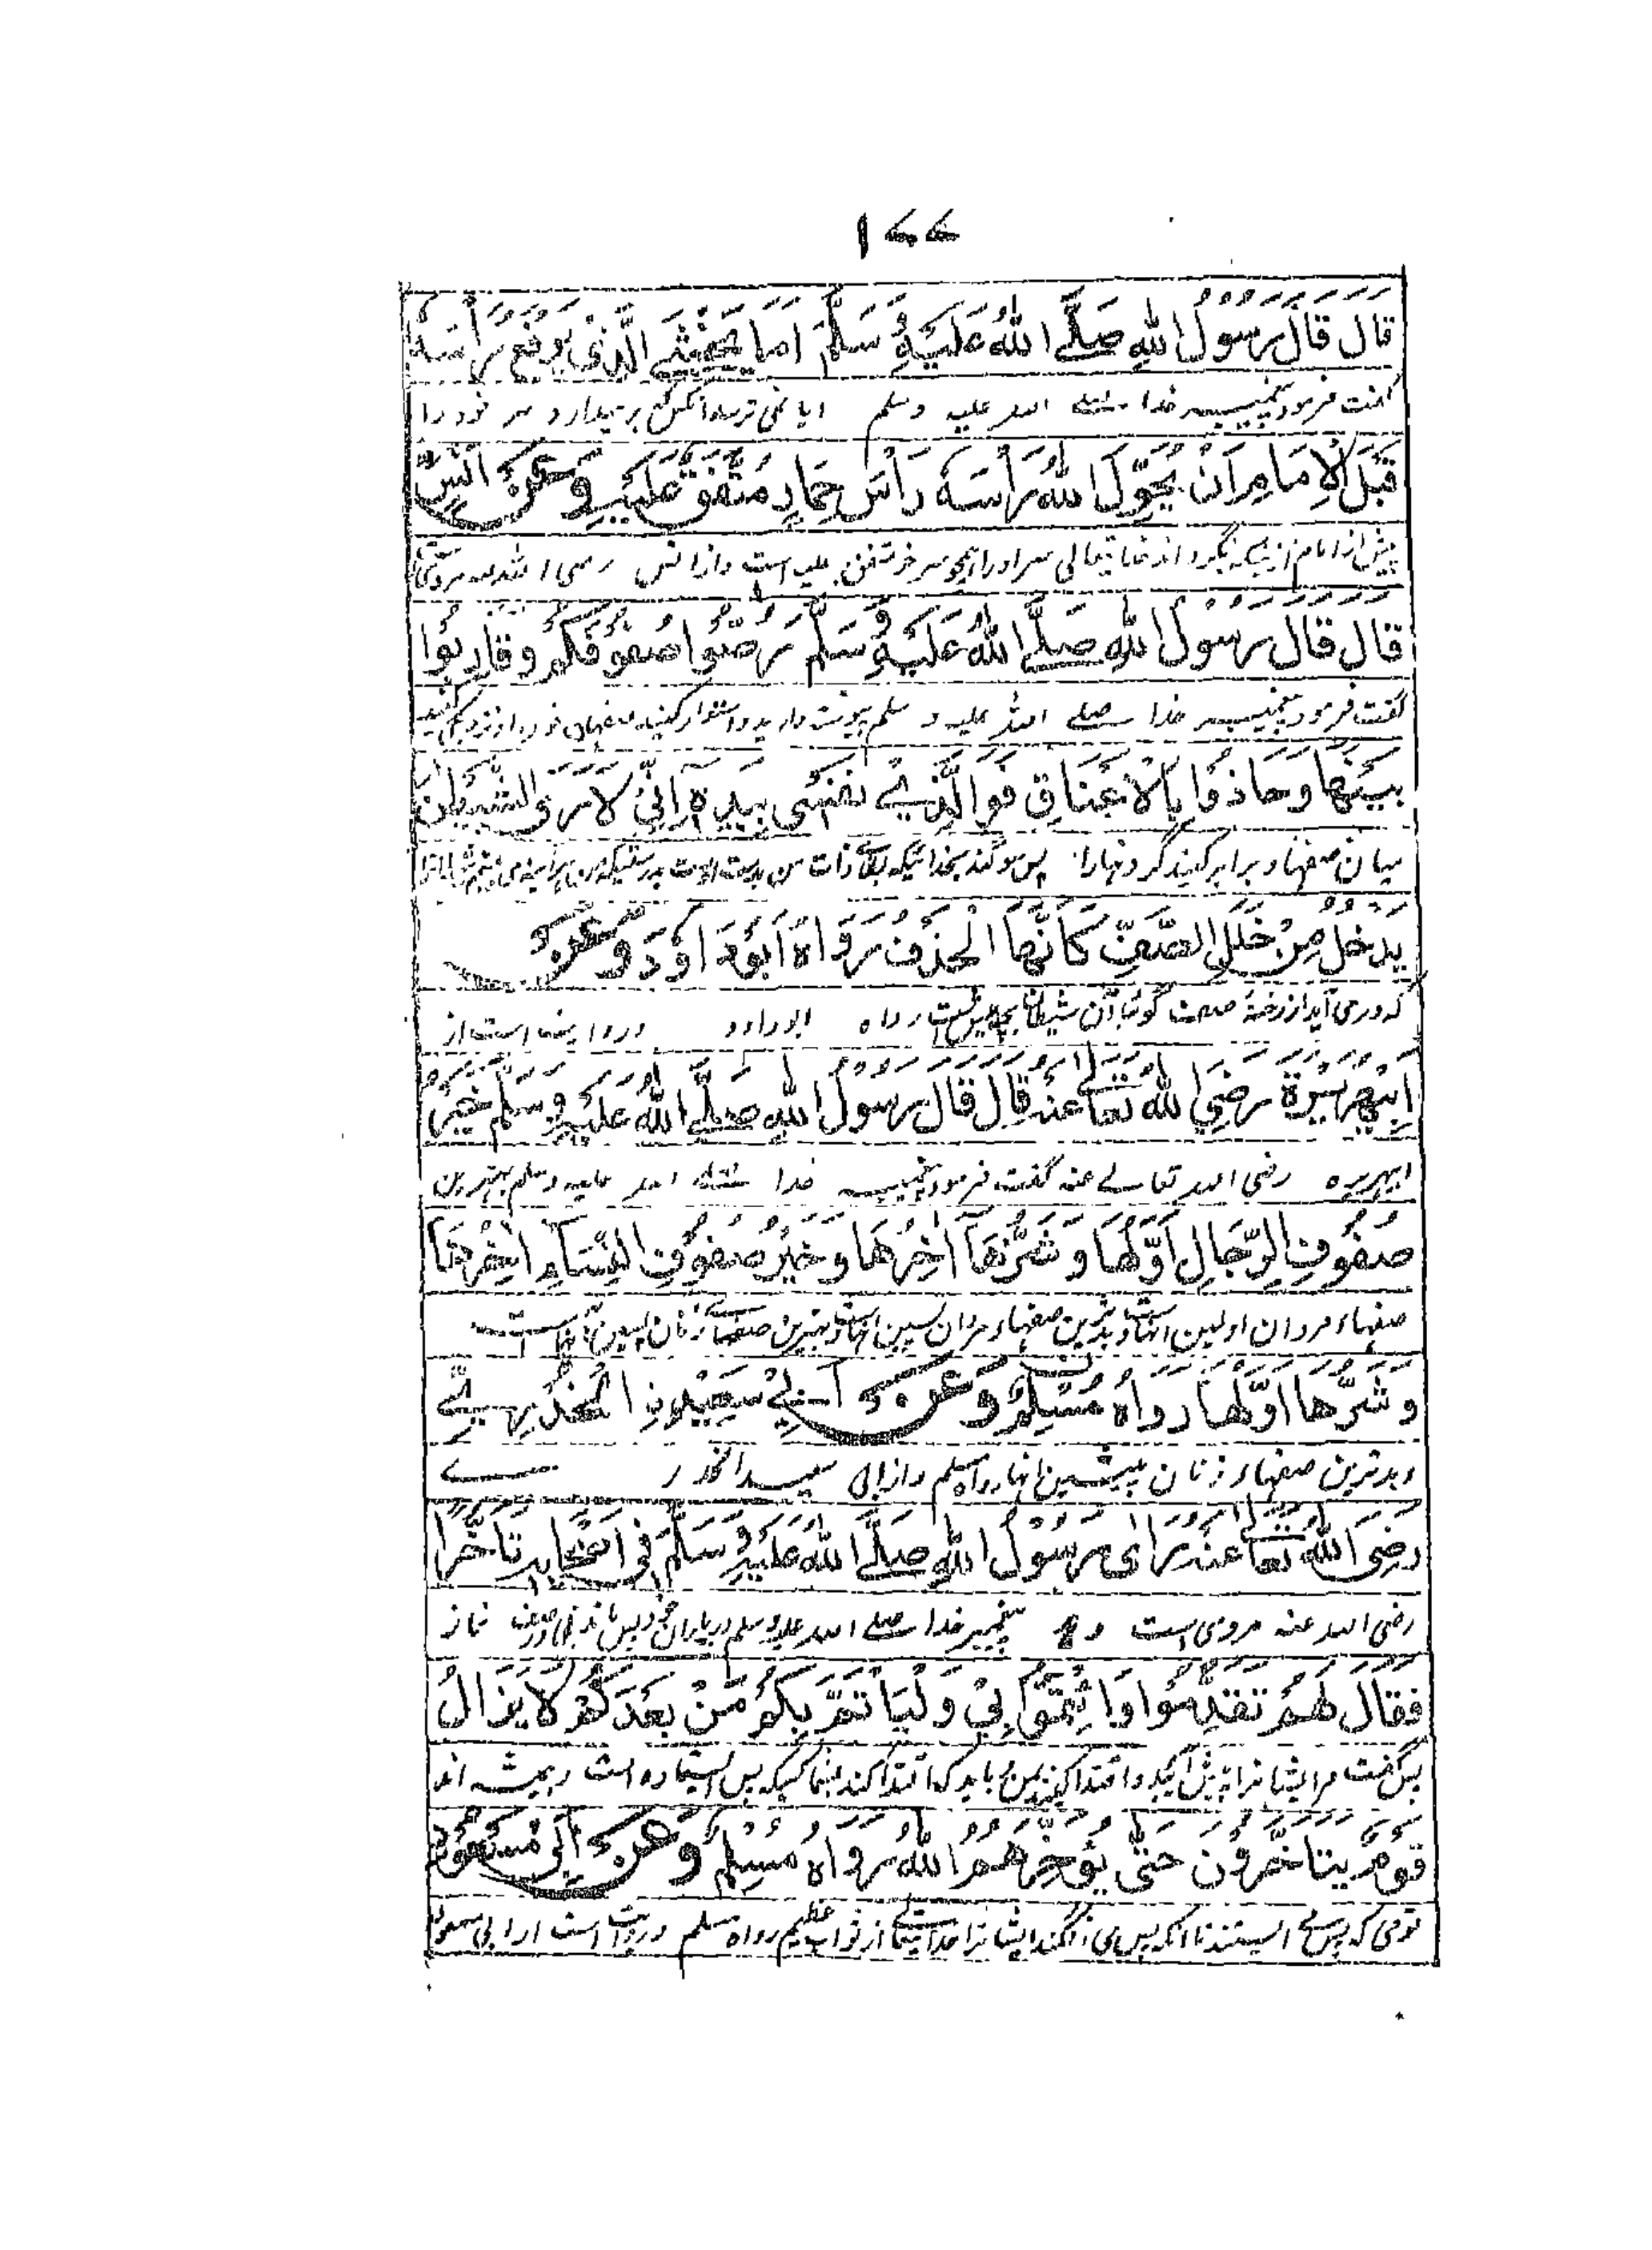 ۱۷۷
قَالَ قَالَ رَسُوْلُ اللهِ صَلَّے اللهُ عَلَيْهِ وَسَلَّمَ اَمَا يَخْشَے الَّذِیْ يَرْفَعُ رَأْسَهٗ
گفت فرمود پیغمبر خدا صلے الله علیه وسلم ایا نمی ترسد انکس که بر میدارد سر خود را
قَبْلَ الْاِمَامِ اَنْ يُّحَوِّلَ اللهُ رَأْسَهٗ رَأْسَ حِمَارٍ مُتَّفَقٌ عَلَيْهِ وَعَنْ اَنَسٍ
پیش از امام از اینکه بگرداند خدایتعالی سر او را همچو سر خر متفق علیه است و از انس رضی الله عنه مروی
قَالَ قَالَ رَسُوْلُ اللهِ صَلَّے اللهُ عَلَيْهِ وَسَلَّمَ رُصُّوْا صُفُوْفَكُمْ وَقَارِبُوْا
گفت فرمود پیغمبر خدا صلے الله علیه و سلم پیوست دارید و استوار کنید صفهای خود را و نزدیکی کنید
بَيْنَهَا وَحَاذُوْا بِالْاَعْنَاقِ فَوَالَّذِیْ نَفْسِیْ بِيَدِهٖ اِنِّیْ لَاَرَی الشَّيْطَانَ
میان صفها و برابر کنید گردنها را پس سوگند بخدائیکه بقاے ذات من بدست اوست بدرستیکه من
يَدْخُلُ مِنْ خَلَلِ الصَّفِّ كَاَنَّهَا الْحَذَفُ رَوَاهُ اَبُوْدَاوٗدَ وَعَنْ
که در می آید از رخنهٔ صف گویا آن شیطان رواه ابو داود و روایت است از
اَبِيْهُرَيْرَةَ رَضِيَ اللهُ تَعَالٰے عَنْهُ قَالَ قَالَ رَسُوْلُ اللهِ صَلَّے اللهُ عَلَيْهِ وَسَلَّمَ خَيْرُ
ابیهریره رضی الله تعالے عنه گفت فرمود پیغمبر خدا صلے الله علیه وسلم بهترین
صُفُوْفِ الرِّجَالِ اَوَّلُهَا وَشَرُّهَا اٰخِرُهَا وَخَيْرُ صُفُوْفِ النِّسَآءِ اٰخِرُهَا
صفهاء مردان اولین انهاست و بدترین صفهاء مردان پسین انهاست و بهترین صفهاے زنان پسین انهاست
وَشَرُّهَا اَوَّلُهَا رَوَاهُ مُسْلِمٌ وَعَنْ اَبِیْ سَعِيْدِنِ الْخُدْرِیِّ
و بدترین صفهاء زنان پیشین انها رواه مسلم و از ابی سعید الخدرے
رَضِيَ اللهُ تَعَالٰے عَنْهُ رَاٰی رَسُوْلُ اللهِ صَلَّے اللهُ عَلَيْهِ وَسَلَّمَ فِیْ اَصْحَابِهٖ تَاَخُّرًا
رضی الله عنه مروی است پیغمبر خدا صلے الله علیه وسلم در یاران خود پس ماندنی در صف نماز
فَقَالَ لَهُمْ تَقَدَّمُوْا وَائْتَمُّوْا بِیْ وَلْيَاْتَمَّ بِكُمْ مَنْ بَعْدَكُمْ لَا يَزَالُ
پس گفت مر ایشانرا پیش آئید و اقتدا کنید بمن و باید که اقتدا کند بشما کسیکه پس ایستاده است همیشه اند
قَوْمٌ يَتَاَخَّرُوْنَ حَتّٰی يُؤَخِّرَهُمُ اللهُ رَوَاهُ مُسْلِمٌ وَعَنْ اَبِیْ مَسْعُوْدٍ
قومی که پس می ایستند تا انکه پس می افگند ایشانرا خدایتعالے از ثواب عظیم رواه مسلم و روایت است از ابی مسعود